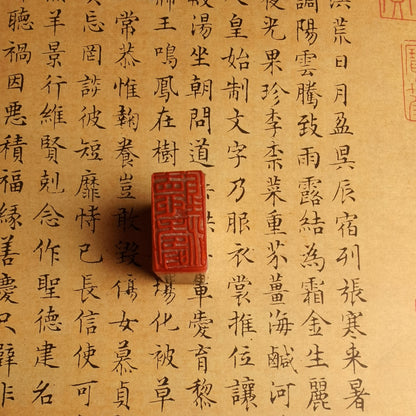 洪荒日月盈昃辰宿列張寒来暑
調陽雲騰致雨露結為霜金生麗
夜光果珍李柰菜重芥薑海鹹河
人皇始制文字乃服衣裳推位讓
湯坐朝問道章愛育黎
王鳴鳳在樹場化被草
常恭惟鞠養豈敢毀傷女慕貞
忘罔談彼短靡恃己長信使可
羔羊景行維賢剋念作聖德建名
聽禍因惡積福緣善慶尺璧非